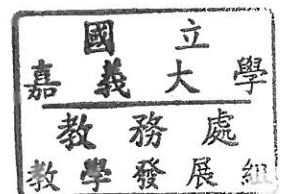 國立
嘉義大學
教務處
教學發展組